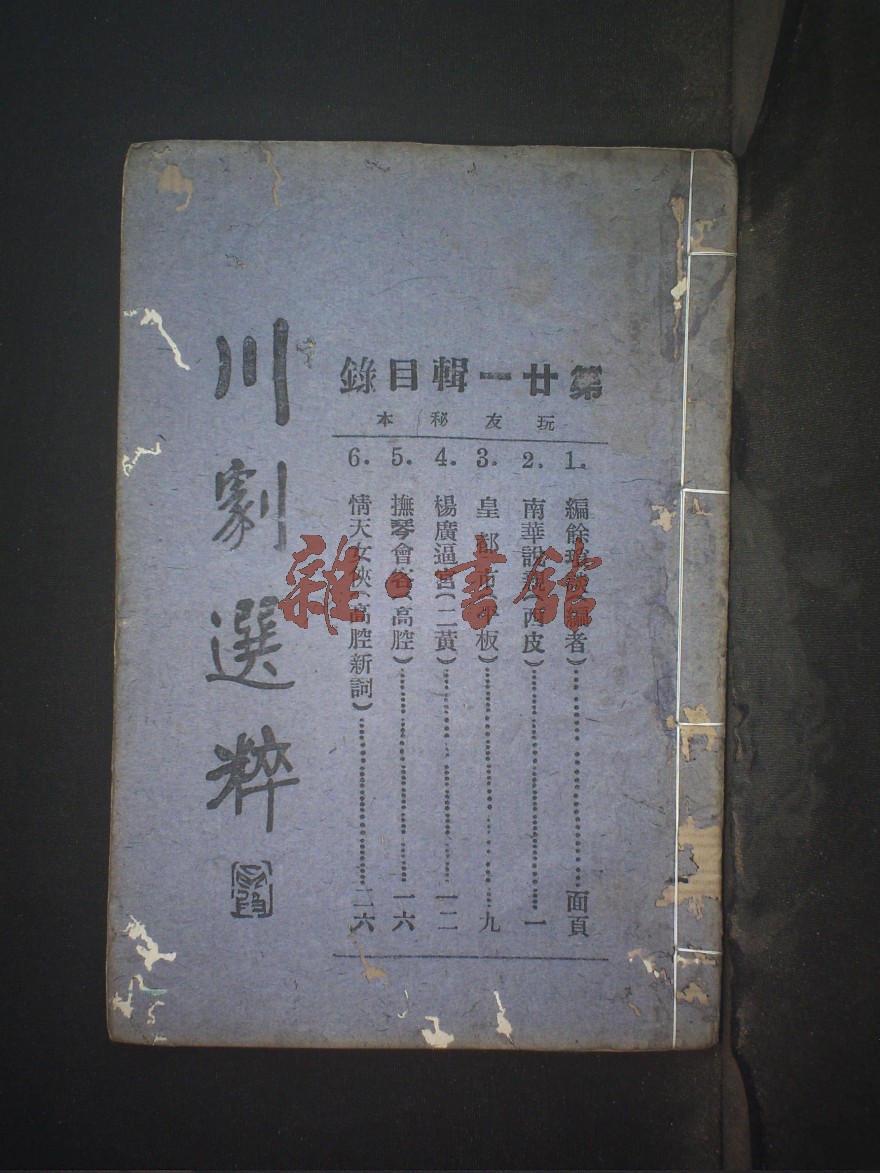 第廿一輯目錄
玩友秘本
1. 編餘(編者)……面頁
2. 南華說(西皮)……一
3. 皇都市(板)……九
4. 楊廣逼宮(二黃)……一二
5. 撫琴會(高腔)……一六
6. 情天女俠(高腔新詞)……二六
川劇選粹
雜·書館